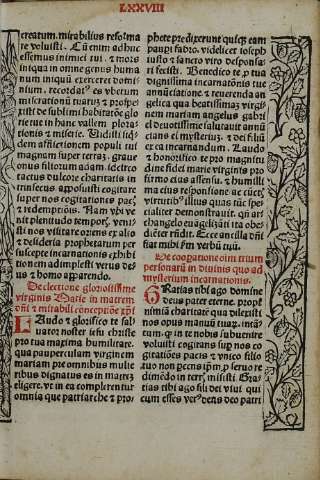 LXXVIII
creatum. mirabilius reforma
re voluisti. Cū enim adhuc
essemus inimici tui. ⁊ mors
iniqua in omne genus huma
num iniquū exerceret domi-
nium. recordat⁹ es vberum
miserationū tuarū ⁊ prospe
xisti de sublimi habitatōe glo
rie tue in hanc vallem plora-
tionis ⁊ miserie. Uidisti siq̄
dem afflictionem populi tui
magnam super terrā. graue
onus filiorum adam. idcirco
tactus dulcore charitatis in
trinsecus apposuisti cogitare
super nos cogitationes pac̄
⁊ redemptiōis. Nam vbi ve
nit plenitudo tempor̄. veni-
sti nos visitare oriens ex alto
⁊ desideria prophetarum per
suscepte incarnationis exhibi
tionem adimplesti verus de-
us ⁊ homo apparendo.
De electione gloriosissime
virginis Marie in matrem
dn̄i ⁊ mirabili conceptiōe xp̄i
LAudo ⁊ glorifico te sal
uator noster iesu christe
pro tua maxima humilitate.
qua pauperculam virginem
mariam pre omnibus mulie
ribus dignatus es in matrē
eligere. vt in ea complerentur
omnia que patriarche ⁊ pro-
phete predixerunt quisq̄ eam
paupi fabro. videlicet ioseph
iusto ⁊ sancto viro desponsa-
ri fecisti. Benedico te p̱ tua
dignissima incarnatōnis tue
annūciatione ⁊ reuerenda an
gelica qua beatissimaz virgi
nem mariam angelus gabri
el deuotissime salutauit annū
cians ei mysterium ⁊ dei filiū
ex ea incarnandum. Laudo
⁊ honorifico te pro magnitu
dine fidei marie virginis pro
firmo eius assensu. ⁊ humilli
ma eius responsione ac cūct̄
virtutib⁹ illius quas tūc spe-
cialiter demonstrauit. qn̄ ar-
changelo euāgelizāti ita obe
dièter rn̄dit. Ecce ancilla dn̄i
fiat mihi ẜm verbū tuū.
De cooꝑatione oīm trium
personarū in diuinis quo ad
mysterium incarnationis.
GRatias tibi ago domine
deus pater eterne. propt̄
nimiā charitatē qua dilexisti
nos opus manuū tuar̄. intā-
tum. q̱ in te nobis subuenire
voluisti cogitans sup nos co
gitatiōes pacis ⁊ vnico filio
tuo non p̱cens ip̄m p̱ seruo re
dimēdo in terr̄ misisti Gra-
tias tibi ago fili dei viui qui
cum esses ver⁹ deus deo patri